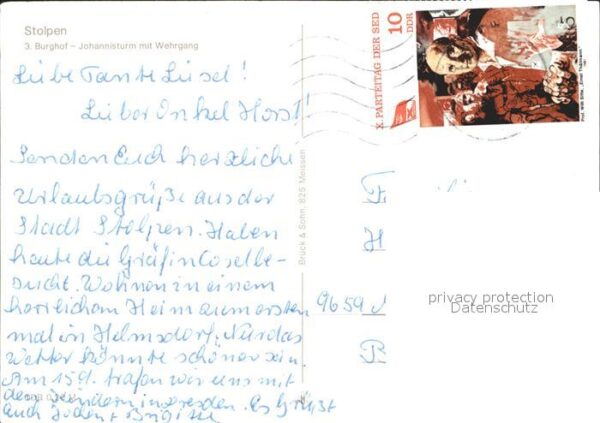 Stolpen
3. Burghof – Johannisturm mit Wehrgang
Liebe Tante Liesel!
Lieber Onkel Horst!
Senden Euch herzliche
Urlaubsgrüße aus der
Stadt Stolpen. Haben
heute die Gräfin Coselbe-
sucht. Wohnen in einem
herrlichen Heim am ersten
mal in Helmsdorf. Nur das
Wetter könnte schöner sein.
Am 15. trafen wir uns mit
den Kindern in Dresden. Es grüßt
Euch Jochen + Brigitte
Bruck & Sohn, 825 Meissen
X. PARTEITAG DER SED
10
DDR
F
H
9659
P
privacy protection
Datenschutz